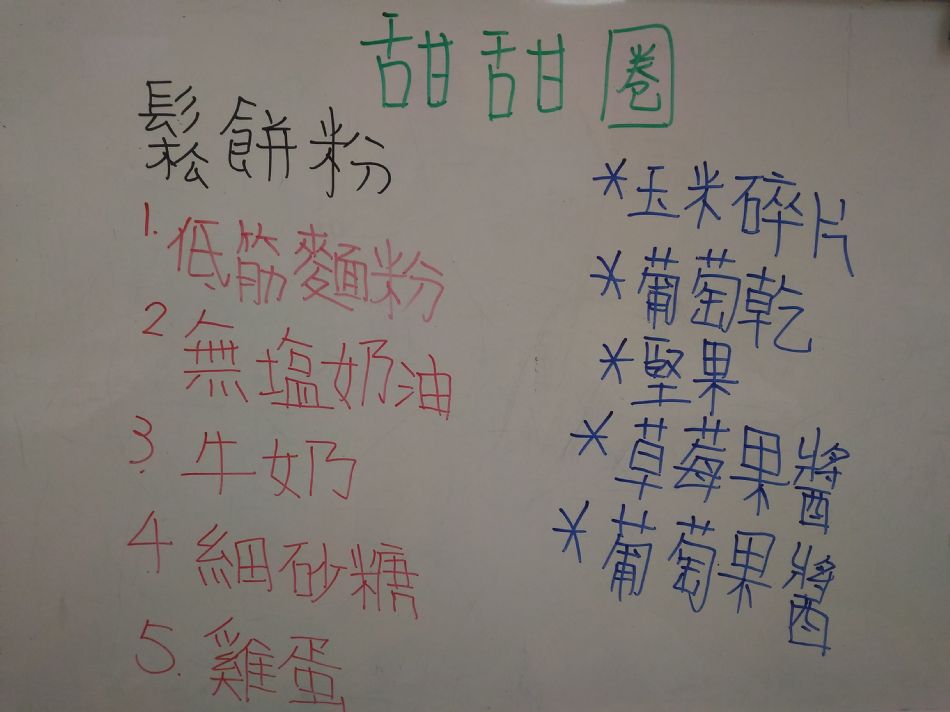 甜甜圈
鬆餅粉
1. 低筋麵粉
2 無塩奶油
3. 牛奶
4 細砂糖
5. 雞蛋
*玉米碎片
*葡萄乾
*堅果
*草莓果醬
*葡萄果醬